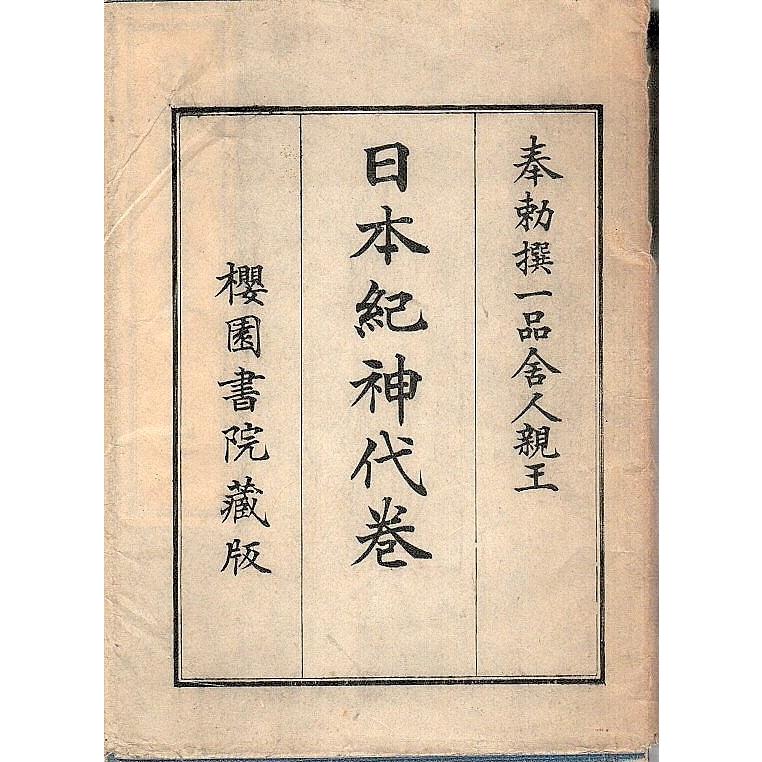 奉勅撰一品舍人親王
日本紀神代卷
櫻園書院藏版